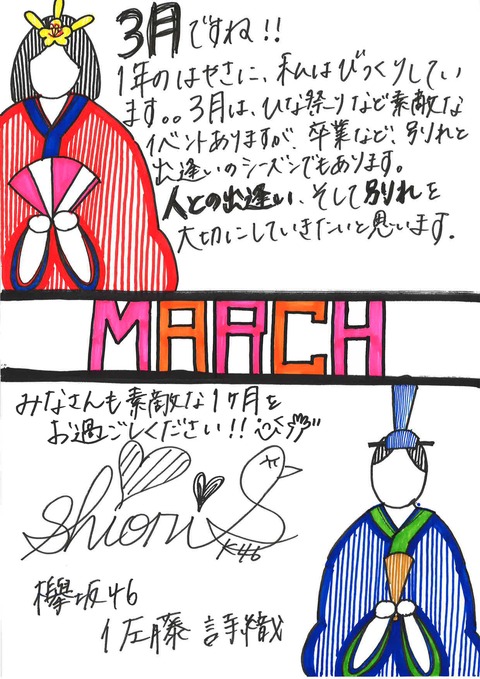 3月ですね!!
1年のはやさに、私はびっくりしてい
ます。。3月は、ひな祭りなど素敵な
イベントありますが、卒業など、別れと
出逢いのシーズンでもあります。
人との出逢い、そして別れを
大切にしていきたいと思います.
MARCH
みなさんも素敵な1ヶ月を
お過ごしください!!
Shiori S
K46
欅坂46
佐藤 詩織